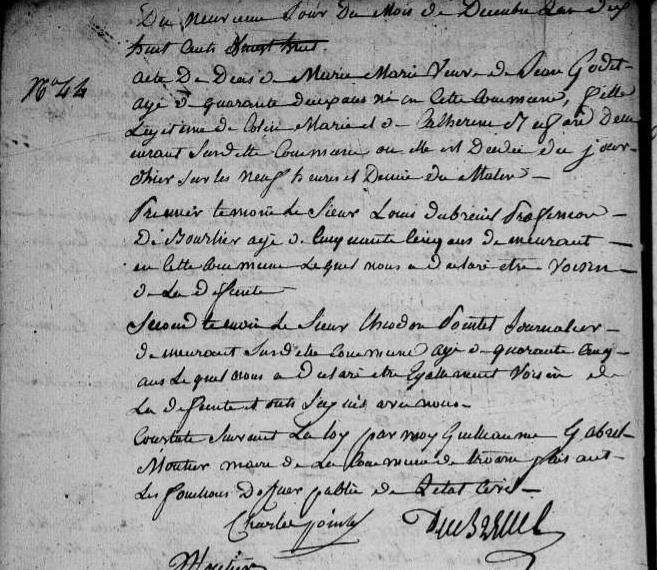 Du neuvieme Jour Du Mois de Decembre L'an dix
huit cents
No 44
acte De Deces de Marie Marie Veuve de Jean Godet
agé de quarante deux ans né en Cette Commune, fille
Legitime de Colin Marie et de Catherine Demeu
rant Surdette Commune ou elle est Decedee du jour
d'hier sur les neuf heures et Demie du Matin —
Premier temoin Le Sieur Louis dubreuil Profession —
De Bourlier agé de Cinquante Cinq ans demeurant —
en Cette Commune Lequel nous a Declaré être Voisin —
de La Defunte
Second temoin Le Sieur Pointel Journalier —
demeurant Surdette Commune agé de quarante Cinq
ans Lequel nous a Declaré etre Egallement Voisin de
La defunte et ont Signés avec nous —
Constaté Suivant La loy par moy Guillaume Gabriel
Moutier maire de La Commune de faisant
Les fonctions Doficier public de Letat Civil —
Charle pointel DuBREUIL
Moutier